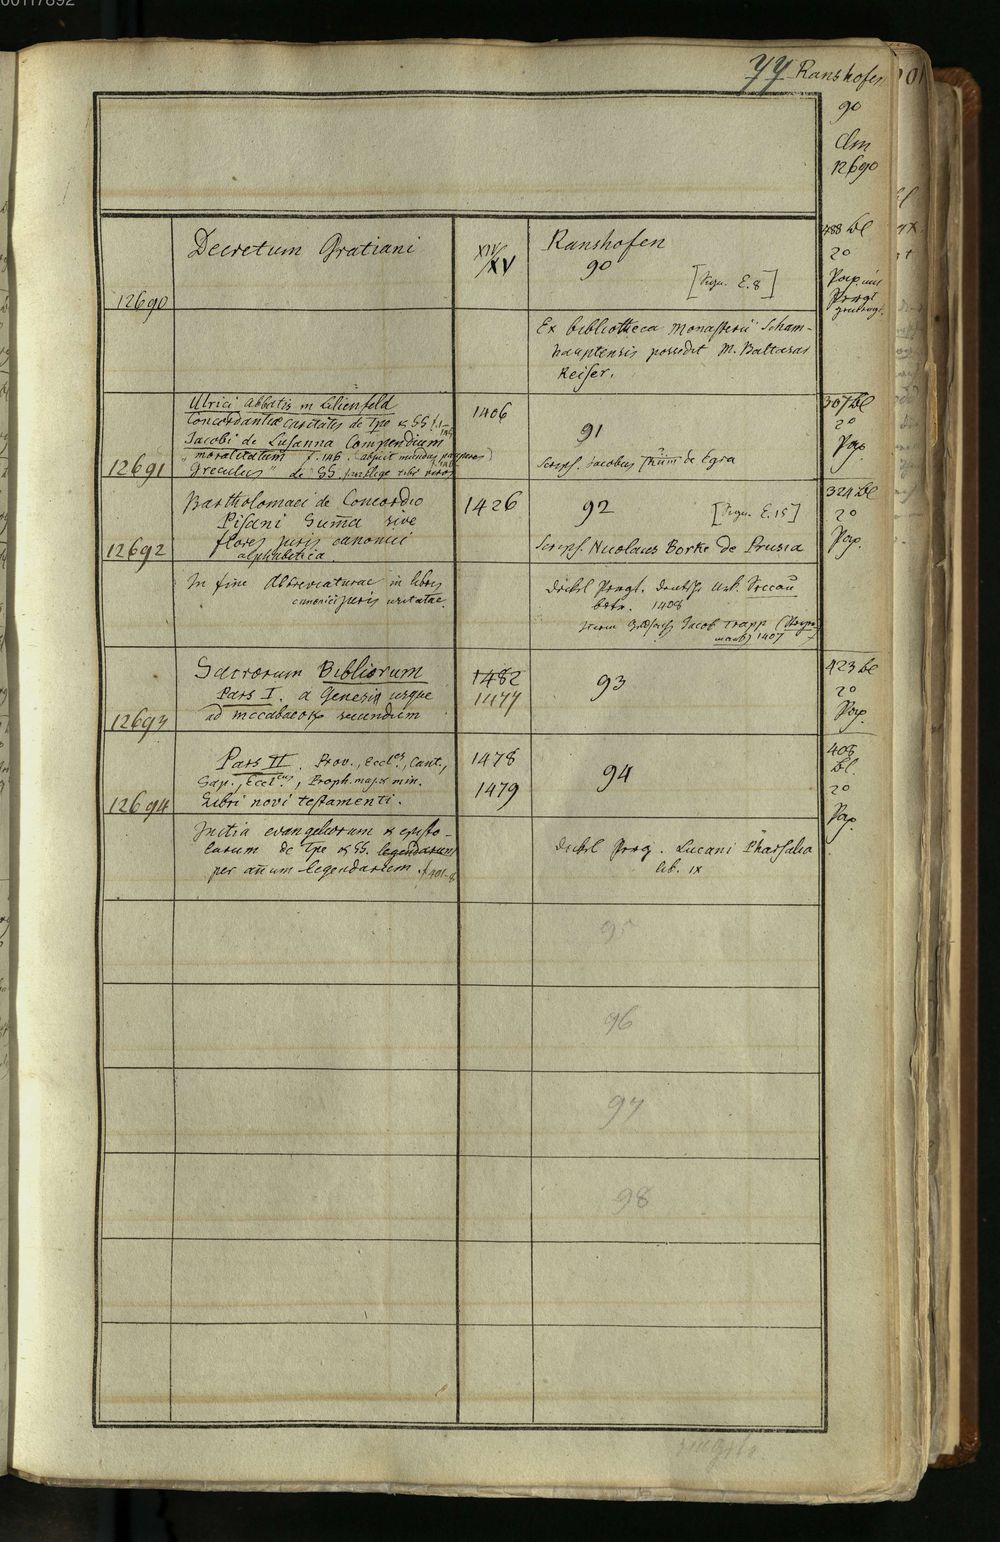 00117892
77 Ranshofen
90
Clm
12690
Decretum Gratiani
XIV/XV
Ranshofen
90
[Sign. E.8]
12690
488 Bl
2o
Pap. mit
Prgt
Ex bibliotheca monasterii Scham-
hauptensis possedit M. Baltasar
Keiser.
Ulrici abbatis in Lilienfeld
Concordantiae caritatis de Tpe & SS f.1-
Jacobi de Lusanna Compendium
moralitatum f. 146. (abjicit mundus pauperes)
12691 "Greculus" de SS.
1406
91
Scrips. Jacobus de Egra
307 Bl
2o
Pap
Bartholomaei de Concordio
Pisani Sum̄a sive
flores juris canonici
12692 alphabetica.
1426
92
[Sign. E.15]
Scrips. Nicolaus Borke de Prusia
324 Bl
2o
Pap.
In fine Abbreviaturae in libris
canonici juris usitatae.
Deckel Prgt. deutsche Urk.
betr. 1408
Jacob Trapp
1407
Sacrorum Bibliorum
Pars I. a Genesi usque
12693 ad mccabaeos secundum
1482
1477
93
423 Bl
2o
Pap.
Pars II. Prov., Eccles, Cant.,
Sap., Eccl.cus, Proph. maj. & min.
12694 Libri novi testamenti.
1478
1479
94
408
Bl.
2o
Pap.
Initia evangeliorum & episto-
larum de Tpe & SS. legendarum
per an̄um legendarum. f 401-8
Deckel Prg. Lucani Pharsalia
lib. IX
95
96
97
98